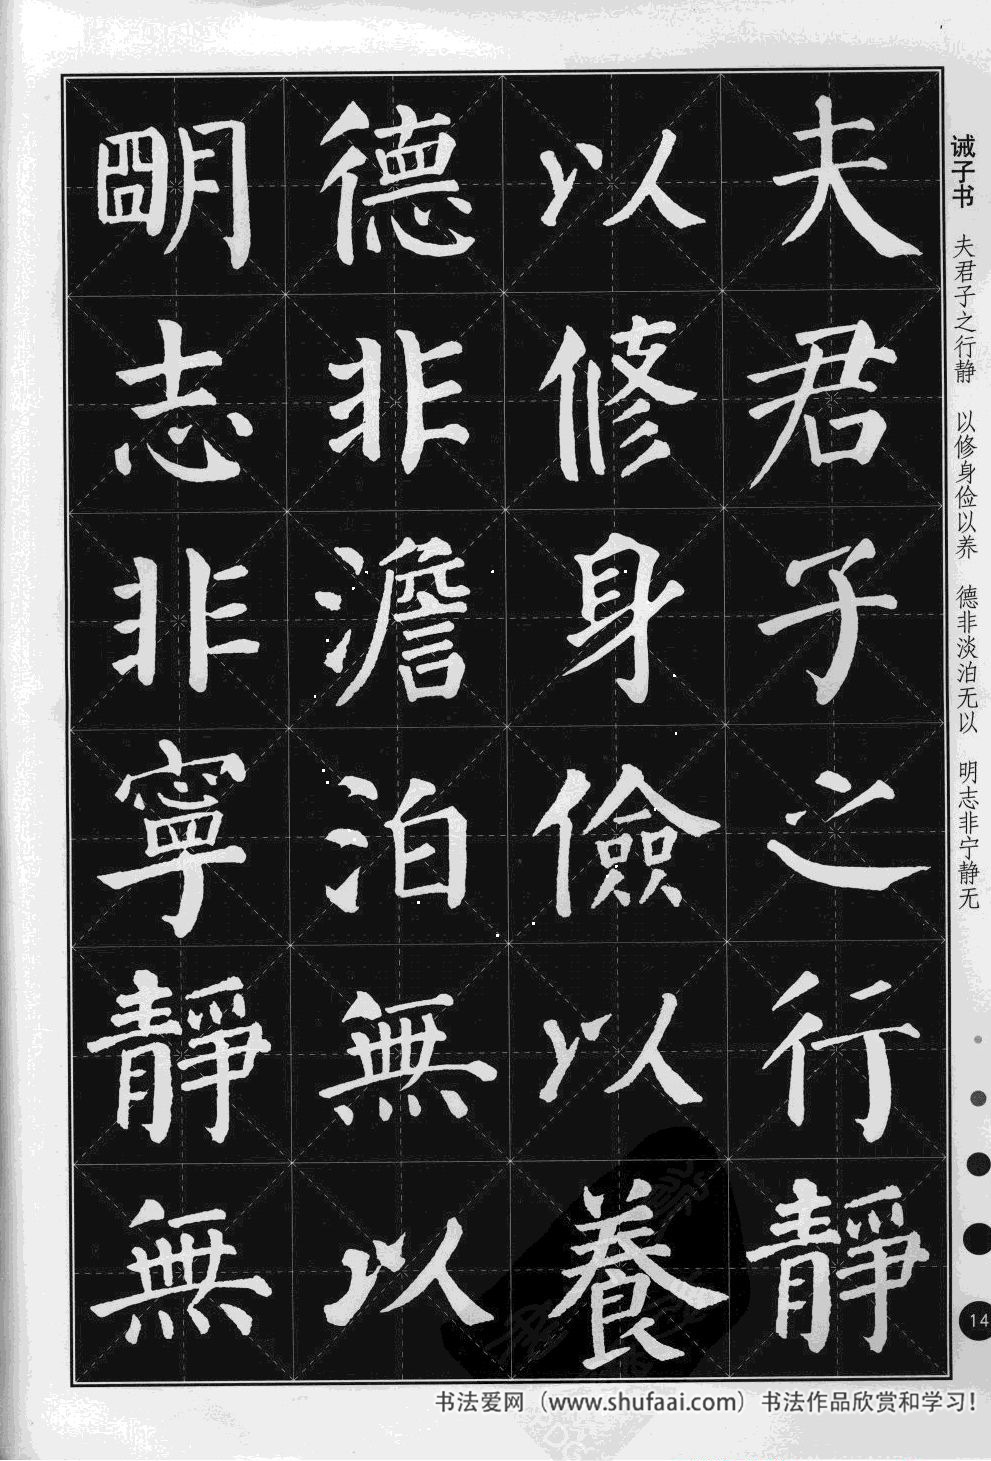 夫君子之行靜
以修身儉以養
德非澹泊無以
明志非寧靜無
诫子书 夫君子之行静 以修身俭以养 德非淡泊无以 明志非宁静无
14
书法爱网（www.shufaai.com）书法作品欣赏和学习！